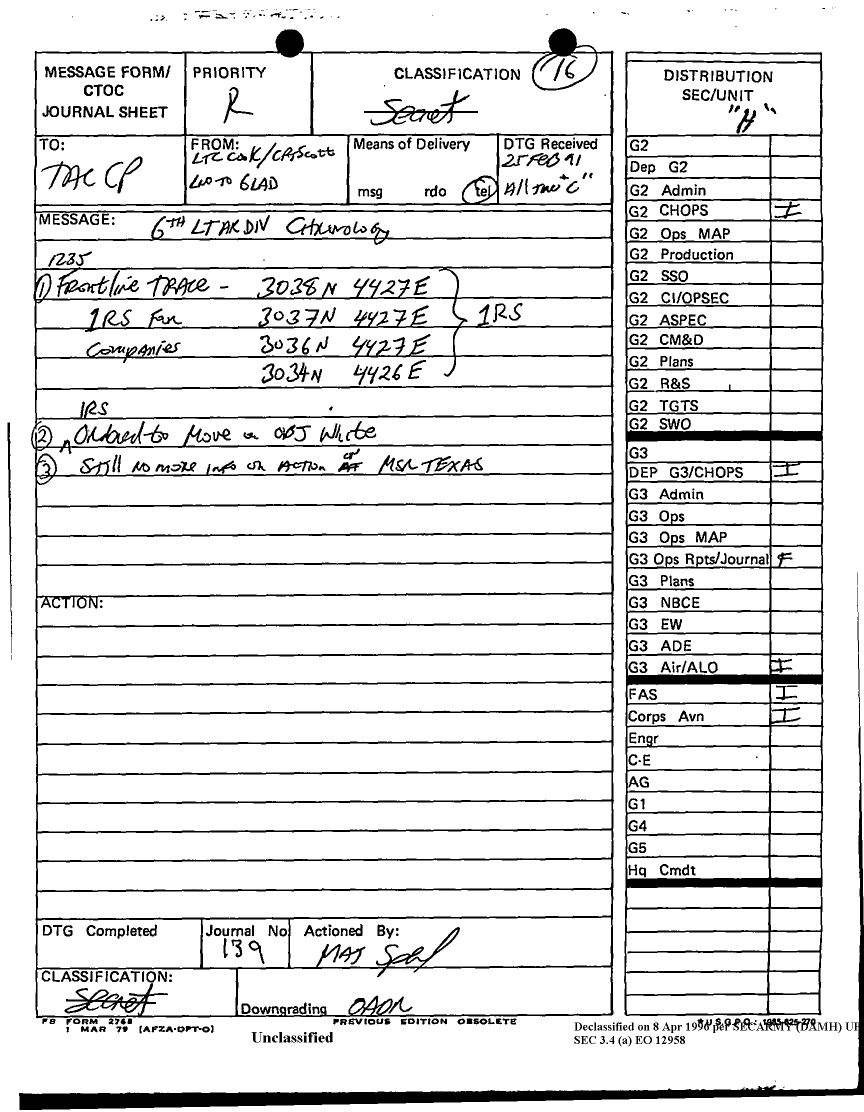 MESSAGE FORM/
CTOC
JOURNAL SHEET
PRIORITY
R
CLASSIFICATION
16
Secret
TO:
TAC CP
FROM:
LTC Cook/CPT Scott
LNO TO 6LAD
Means of Delivery
msg rdo tel
DTG Received
25 FEB 91
"C"
MESSAGE: 6TH LT AR DIV Chronology
1235
1 Frontline TRACE - 3038N 4427E
1RS Fwr 3037N 4427E 1RS
Companies 3036N 4427E
3034N 4426E
1RS
2 Ordered to Move on OBJ White
3 Still no more info on Action on MSR TEXAS
ACTION:
DTG Completed
Journal No
139
Actioned By:
MAJ
CLASSIFICATION:
Secret
Downgrading OADR
FB FORM 2768
1 MAR 79 (AFZA-DPT-O)
PREVIOUS EDITION OBSOLETE
DISTRIBUTION
SEC/UNIT
"H"
G2
Dep G2
G2 Admin
G2 CHOPS I
G2 Ops MAP
G2 Production
G2 SSO
G2 CI/OPSEC
G2 ASPEC
G2 CM&D
G2 Plans
G2 R&S
G2 TGTS
G2 SWO
G3
DEP G3/CHOPS I
G3 Admin
G3 Ops
G3 Ops MAP
G3 Ops Rpts/Journal F
G3 Plans
G3 NBCE
G3 EW
G3 ADE
G3 Air/ALO I
FAS I
Corps Avn I
Engr
C-E
AG
G1
G4
G5
Hq Cmdt
Unclassified
Declassified on 8 Apr 1996 per SECARMY (DAMH) UP
SEC 3.4 (a) EO 12958